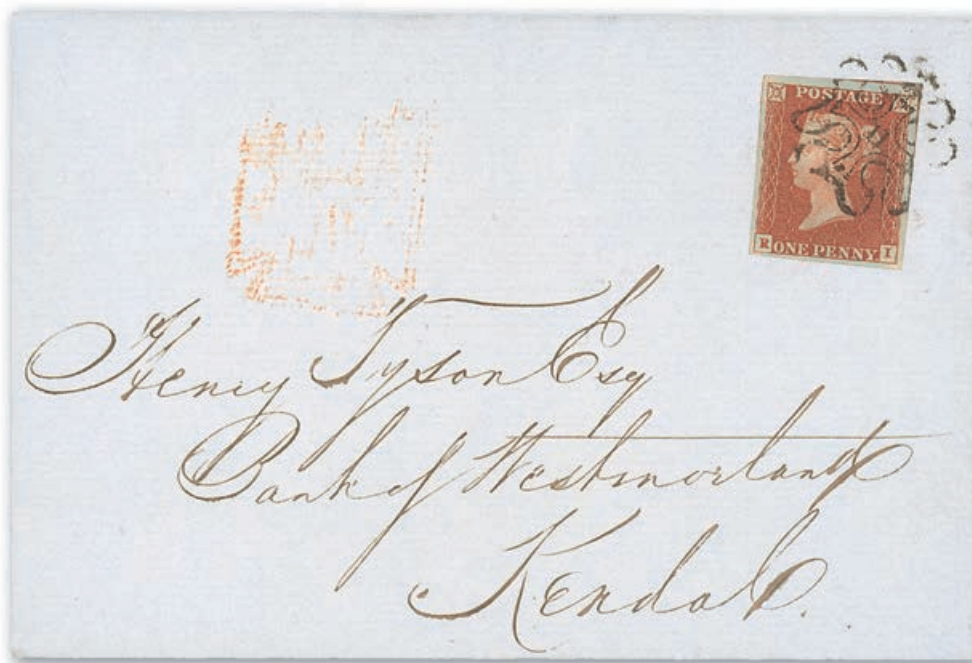 POSTAGE
ONE PENNY
R I
Henry Tyson Esq
Bank of Westmorland
Kendal.